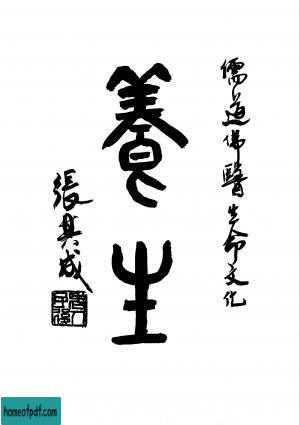 儒道佛醫生命文化
養生
張其成
homeofpdf.com